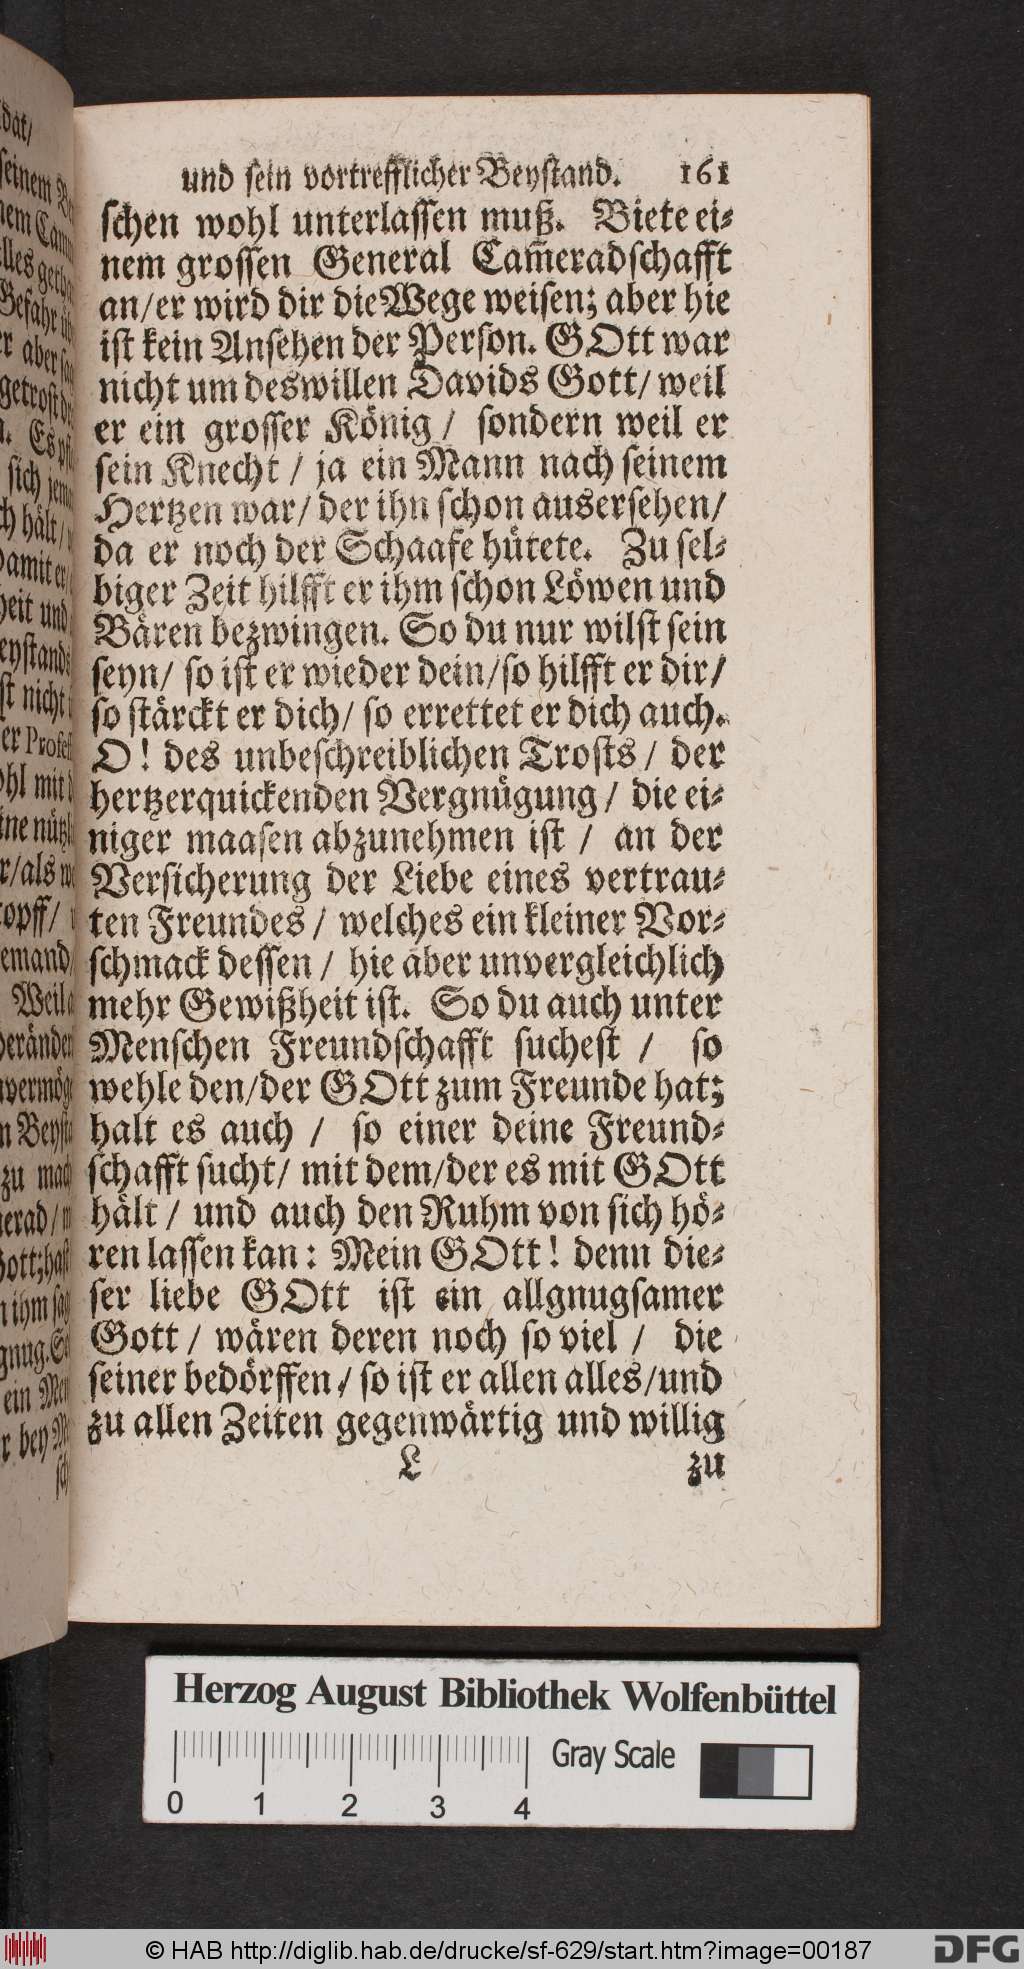 und sein vortrefflicher Beystand. 161
schen wohl unterlassen muß. Biete ei-
nem grossen General Cam̃eradschafft
an/er wird dir die Wege weisen; aber hie
ist kein Ansehen der Person. GOtt war
nicht um deswillen Davids Gott/ weil
er ein grosser König / sondern weil er
sein Knecht / ja ein Mann nach seinem
Hertzen war/ der ihn schon ausersehen/
da er noch der Schaafe hütete. Zu sel-
biger Zeit hilfft er ihm schon Löwen und
Bären bezwingen. So du nur wilst sein
seyn/ so ist er wieder dein/so hilfft er dir/
so stärckt er dich/ so errettet er dich auch.
O! des unbeschreiblichen Trosts / der
hertzerquickenden Vergnügung / die ei-
niger maasen abzunehmen ist / an der
Versicherung der Liebe eines vertrau-
ten Freundes / welches ein kleiner Vor-
schmack dessen / hie aber unvergleichlich
mehr Gewißheit ist. So du auch unter
Menschen Freundschafft suchest / so
wehle den/der GOtt zum Freunde hat;
halt es auch / so einer deine Freund-
schafft sucht/ mit dem/der es mit GOtt
hält / und auch den Ruhm von sich hö-
ren lassen kan: Mein GOtt! denn die-
ser liebe GOtt ist ein allgnugsamer
Gott / wären deren noch so viel / die
seiner bedörffen / so ist er allen alles/und
zu allen Zeiten gegenwärtig und willig
L zu
Herzog August Bibliothek Wolfenbüttel
Gray Scale
0 1 2 3 4
© HAB http://diglib.hab.de/drucke/sf-629/start.htm?image=00187
DFG